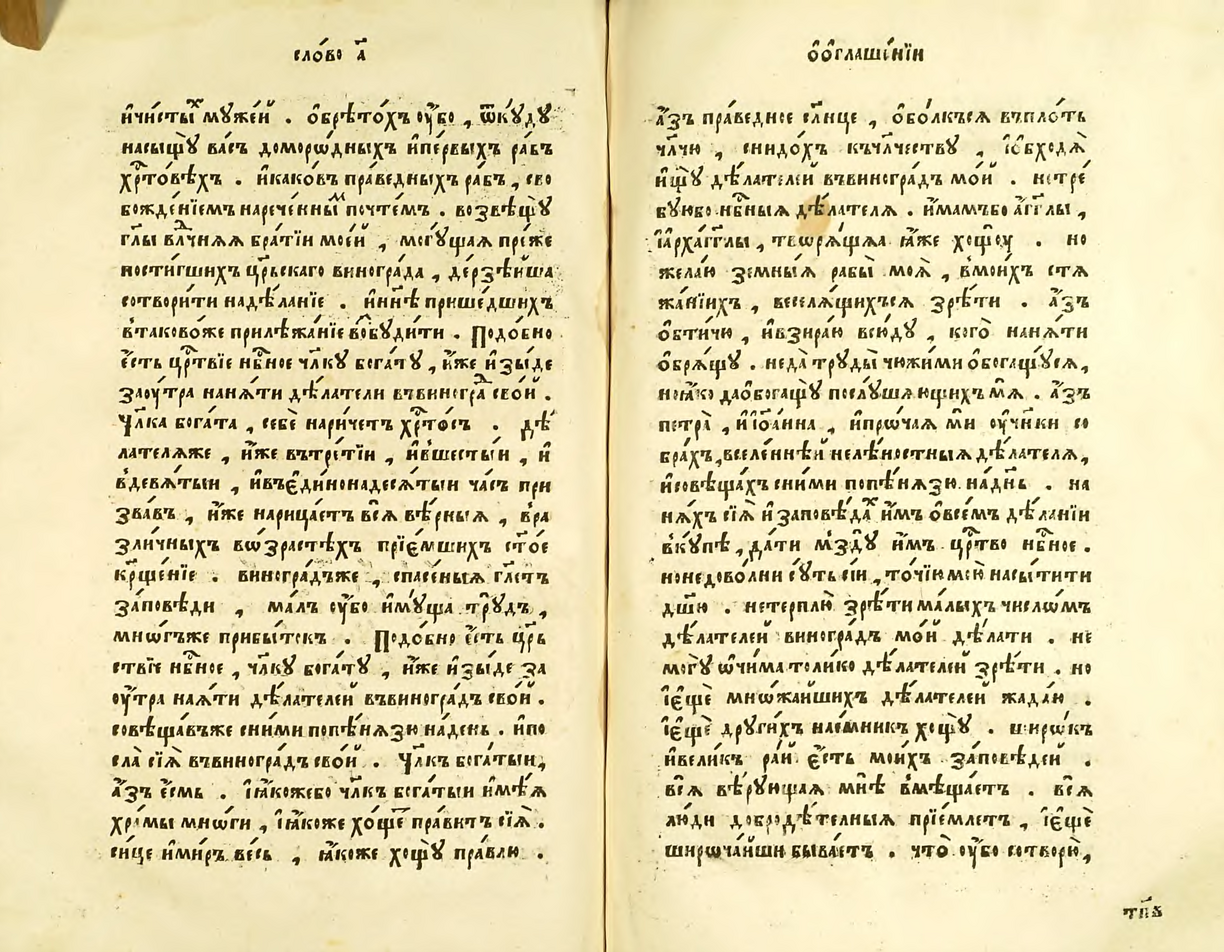 сло́во а҃
и҆чи́сты́ⷯ мꙋже́й . ѡ҆брѣ́тохъ ᲂу҆̀бо , ѿкꙋ́дꙋ
насы́щꙋ ва́съ доморѡ́дныхъ и҆пе́рвыхъ ра́бъ
хрⷭ҇то́вѣхъ . и҆како́въ пра́ведныхъ ра́бъ , сво
божде́нїемъ нарече́нныⷨ почте́мъ . возвѣщꙋ̀
гл҃ы влⷣчнѧѧ бра́тїи мое́й , могꙋ́щаѧ пре́же
пости́гшихъ црⷭ҇ьскаго виногра́да , дерзѣ́йша
сотвори́ти надѣ́ланїе . и҆нн҃ѣ прише́дшихъ
в̾таково́же прилѣжа́нїе воз̾бꙋди́ти . Подо́бно
є҆́сть црⷭ҇твїе нбⷭ҇ное чл҃кꙋ бога́тꙋ , и҆́же и҆зы́де
заꙋ́тра наня́ти дѣ́латели въвиногра́ⷣ сво́й .
Чл҃ка бога́та , себѐ нарече́тъ хрⷭ҇то́съ . дѣ́
лателѧже , и҆́же въ тре́тїи , и҆в̾шесты́и , и҆
в̾девѧ́тыи , и҆въєди́нонадесѧ́тыи ча́съ при
зва́въ , и҆́же нарица́етъ всѧ̀ вѣ́рныѧ , в̾ра
зли́чныхъ во́зрастѣхъ прїє́мшихъ ст҃о́е
крⷭ҇ще́нїе . виногра́дъже , спасе́ныѧ гл҃етъ
за́повѣди , ма́лъ ᲂу҆́бо и҆мꙋ́ща трꙋ́дъ ,
мнѡ́гъже прибы́токъ . Подо́бно є҆́сть црⷭ҇ь
ствїе нбⷭ҇ное , чл҃кꙋ бога́тꙋ , и҆́же и҆зы́де за
ᲂу҆́тра наѧ́ти дѣ́лателей въвиногра́дъ сво́й .
совѣща́въже сни́ми попѣ́нѧзю на́день . и҆по
сла̀ сїѧ̀ въвиногра́дъ сво́й . Чл҃къ бога́тыи ,
а҆́зъ є҆́смь . ꙗ҆́коже́бо чл҃къ бога́тыи и҆мѣ́ѧ
хра́мы мно́ги , ꙗ҆́коже хо́щеⷮ пра́витъ сїѧ̀ .
си́це и҆ми́ръ ве́сь , ꙗ҆́коже хощꙋ̀ пра́влю .
ѡ҆ѡ҆глаше́нїи
а҆́зъ пра́ведное сл҃нце , ѡ҆бо́лкъсѧ въпло́ть
чл҃чю , снидо́хъ къчл҃честву , і҆ѡ҆бходѧ̀
и҆щꙋ̀ дѣ́лателей въвиногра́дъ мо́й . нетре́
бꙋюбо нбⷭ҇ныѧ дѣ́лателѧ . и҆́мамъбо а҆́гг҃лы ,
і҆а҆рха́гг҃лы , творѧ́щѧѧ ꙗ҆́же хощꙋ̀ . но
жела́ю земны́ѧ рабы̀ моѧ̀ , в̾мои́хъ стѧ
жа́нїихъ , веселѧ́щихъсѧ зрѣ́ти . а҆́зъ
ѡ҆б̾тичю̀ , и҆взира́ю всю́дꙋ , кого̀ наня́ти
ѡ҆брѧ́щꙋ . неда̀ трꙋды̀ чюжи́ми ѡ҆богащꙋ́сѧ ,
ноꙗ҆́ко даѡ҆богащꙋ̀ послꙋ́шаѧющихъ мѧ̀ . а҆́зъ
петра̀ , и҆і҆ѡ҆а́нна , и҆прѡ́чаѧ мѝ ᲂу҆чн҃ики со
бра́хъ,вселе́ннѣй нелѣ́ностныѧ дѣ́лателѧ ,
и҆совѣща́хъ сни́ми попѣ́нѧзю на́днь . на
ня́хъ сїѧ̀ и҆заповѣ́даⷯ и҆́мъ ѡ҆все́мъ дѣ́ланїи
в̾кꙋ́пѣ , да́ти мздꙋ̀ и҆́мъ црⷭ҇тво нбⷭ҇ное .
нонедово́лни сꙋ́ть сі́и , то́чїю мою̀ насы́тити
дш҃ю . нетерплю̀ зрѣ́ти ма́лыхъ число́мъ
дѣ́лателей виногра́дъ мо́й дѣ́лати . не
могꙋ̀ ѡ҆чи́ма толи́ко дѣ́лателей зрѣ́ти . но
і҆єщѐ мнѡжа́йшихъ дѣ́лателей жада́ю .
і҆єщѐ дрꙋги́хъ нае́мникъ хощꙋ̀ . широ́къ
и҆вели́къ ра́й є҆́сть мои́хъ за́повѣдей .
всѧ̀ вѣ́рꙋющаѧ мнѣ̀ в̾мѣща́етъ . всѧ̀
лю́ди добродѣ́телныѧ прїе́млетъ , і҆єщѐ
ширѡча́йши быва́етъ . что̀ ᲂу҆́бо сотворю̀ ,